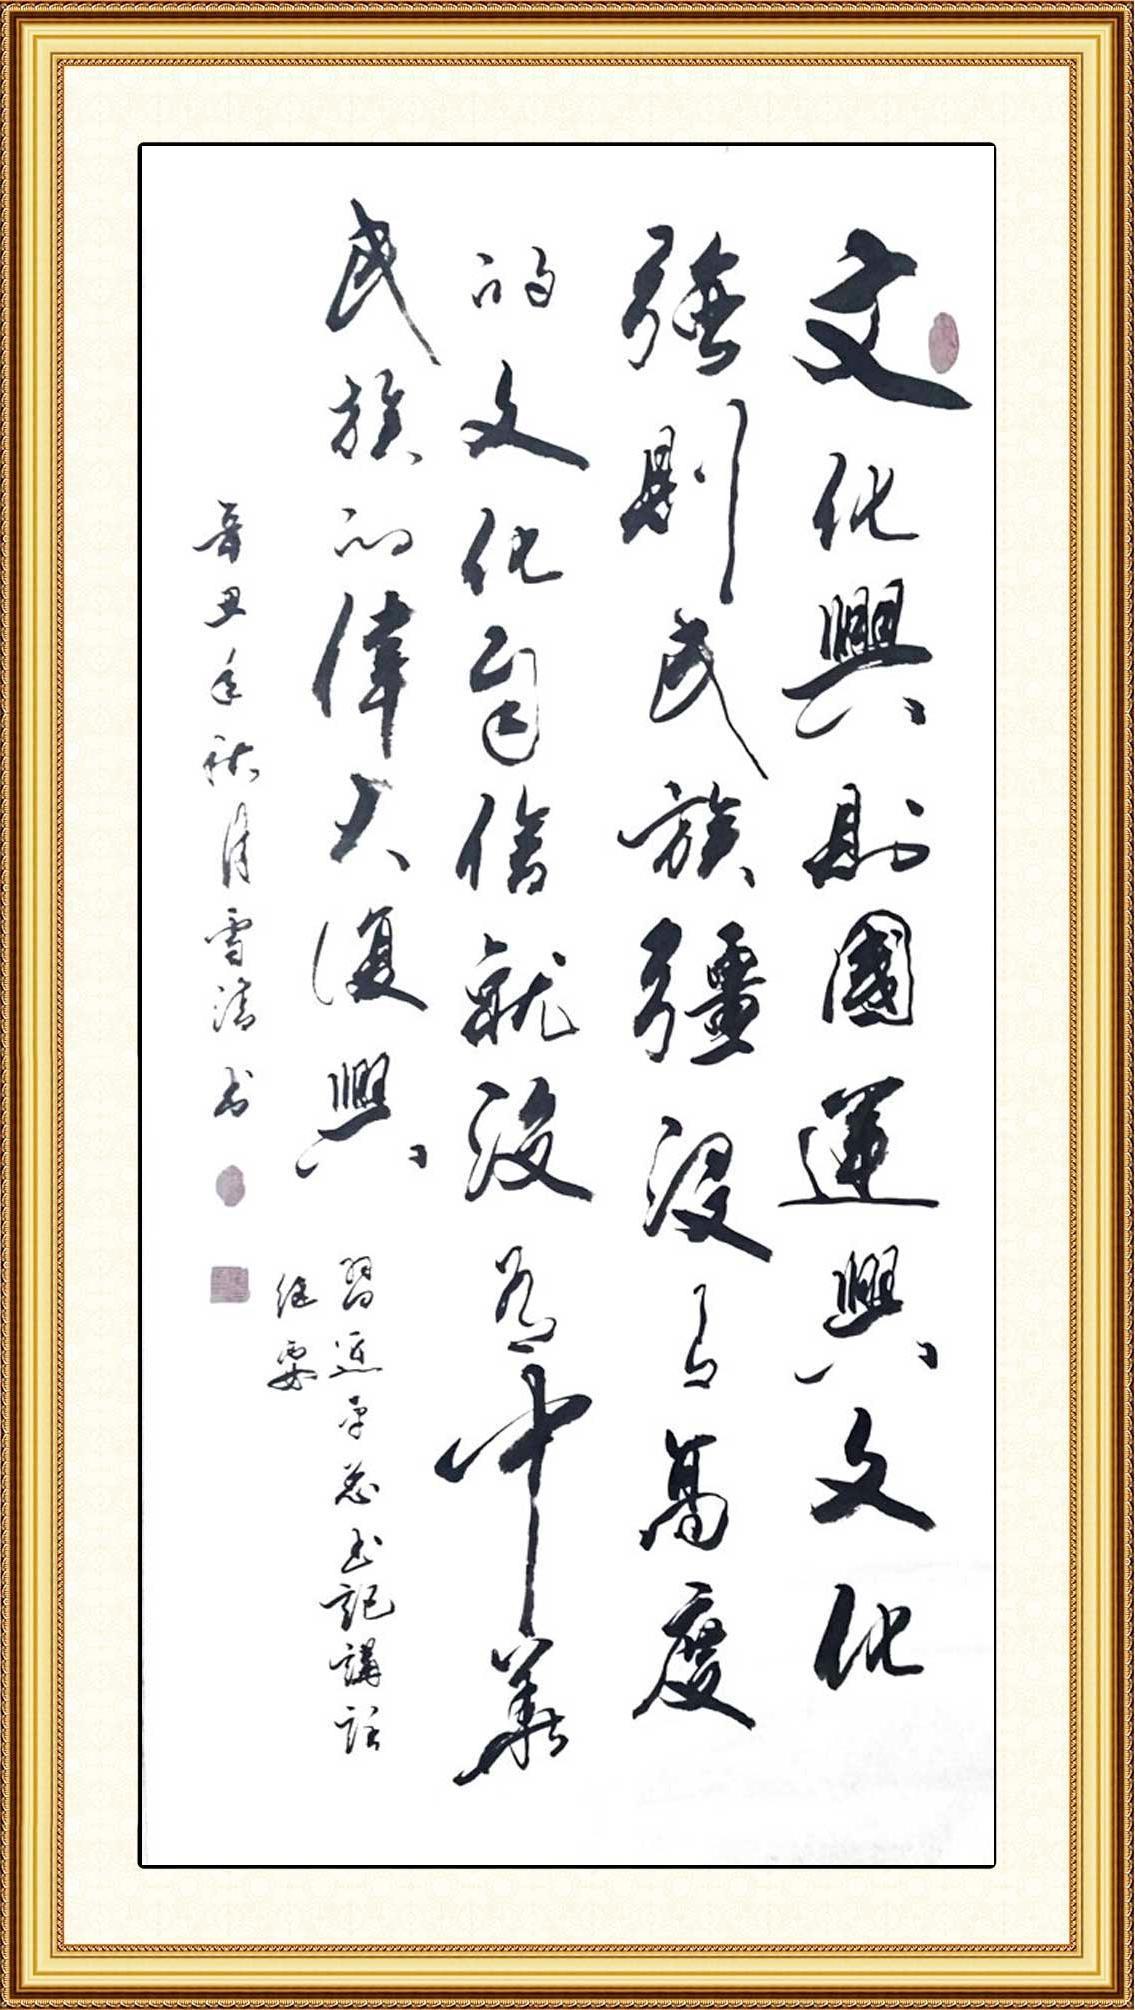 文化興則國運興文化
強則民族彊沒有高度
的文化自信就沒有中華
民族的偉大復興
習近平总书記講話
要
辛丑年秋月雪清书